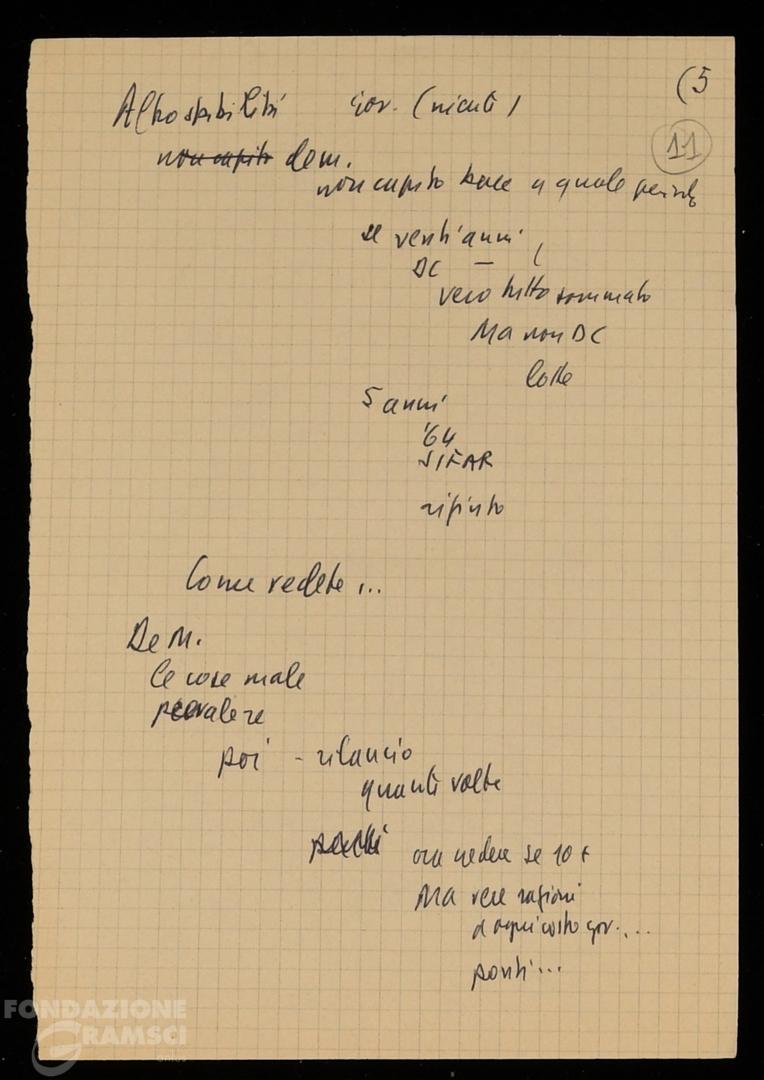 (5
11
Altro stabilità gov. (niente)
non capito dem.
non capito bene a quale periodo
se vent'anni
DC — (
vero tutto sommato
Ma non DC
lotte
5 anni
'64
SIFAR
rifiuto
Come vedete...
De M.
le cose male
prevalere
poi - rilancio
quante volte
ora vedere se 10 +
Ma vere ragioni
a ogni costo gov....
ponti...
FONDAZIONE
GRAMSCI
onlus